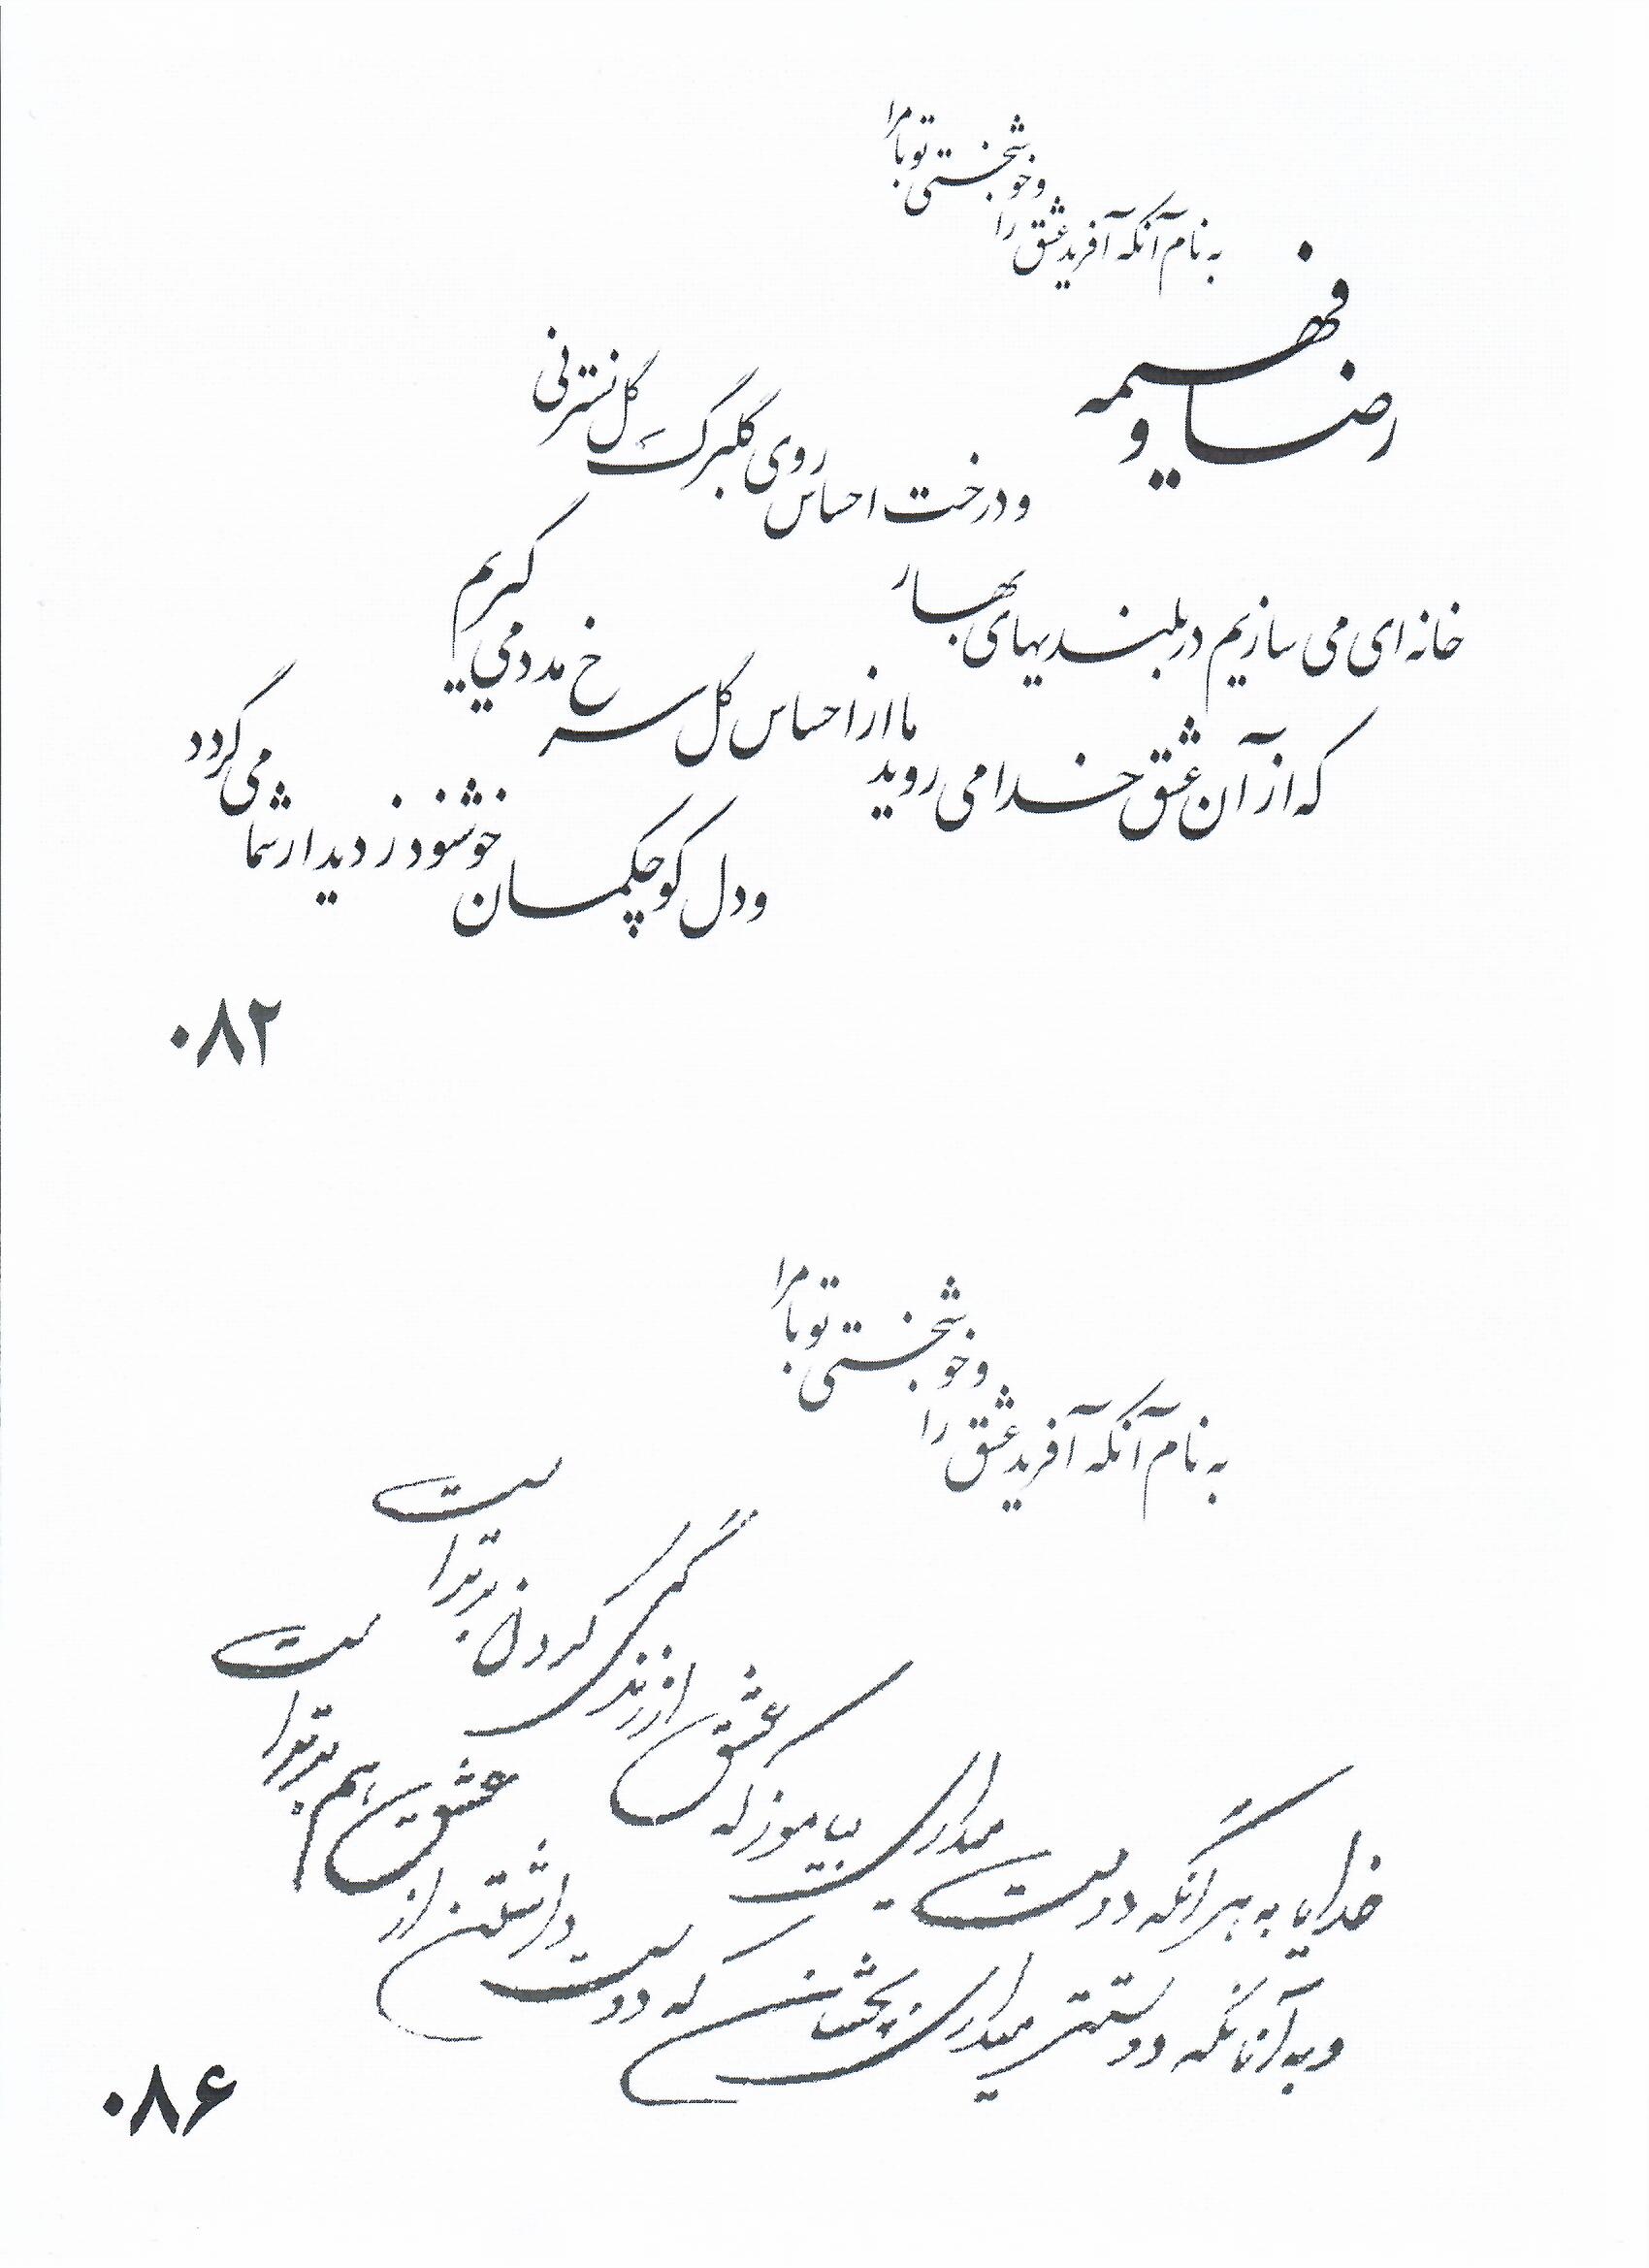 به نام آنکه آفرید عشق را
و خوشبختی تو با مرا
رضا و فهیمه
خانه ای می سازیم در بلندیهای بهار
و درخت احساس روی گلبرگ گل نسترنی
که از آن عشق خدا می روید
ما از احساس گل سرخ مدد می گیریم
و دل کوچکمسان خوشنود ز دیدار شما می گردد
۰۸۲
به نام آنکه آفرید عشق را
و خوشبختی تو با مرا
خدایا به هر آنکه دوست میداری بیاموز که عشق از زندگی کردن برتر است
و به آنانکه دوستتر میداری بچشان که دوست داشتن از عشق هم برتر است
۰۸۶